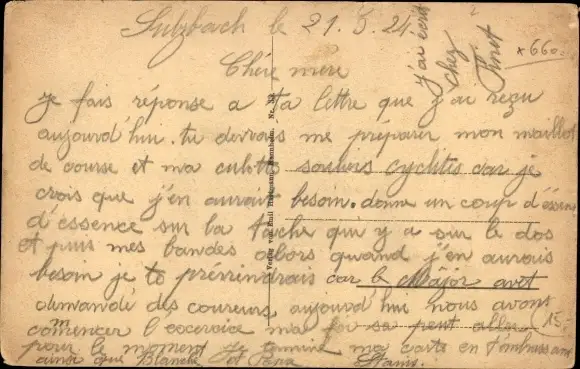 Sulzbach le 21.5.24
j'ai écrit
chez
x 660-
Chere mere
je fais réponse a ta lettre que j'ai reçu
aujourd'hui. tu devrais me préparer mon maillot
de course et ma culotte souliers cyclites car je
crois que j'en aurait besoin. donne un coup d'essence
d'essence sur la tache qui y a sur le dos
et puis mes bandes alors quand j'en aurais
besoin je te préviendrais car le Major avet
demandé des coureurs. aujourd'hui nous avons
commencer l'exercice ma foi sa peut aller
15.-
pour le moment je termine ma carte en t'embrassant
ainsi que Blanche et
Verlag von Emil Hartmann, Mannheim. Nc.